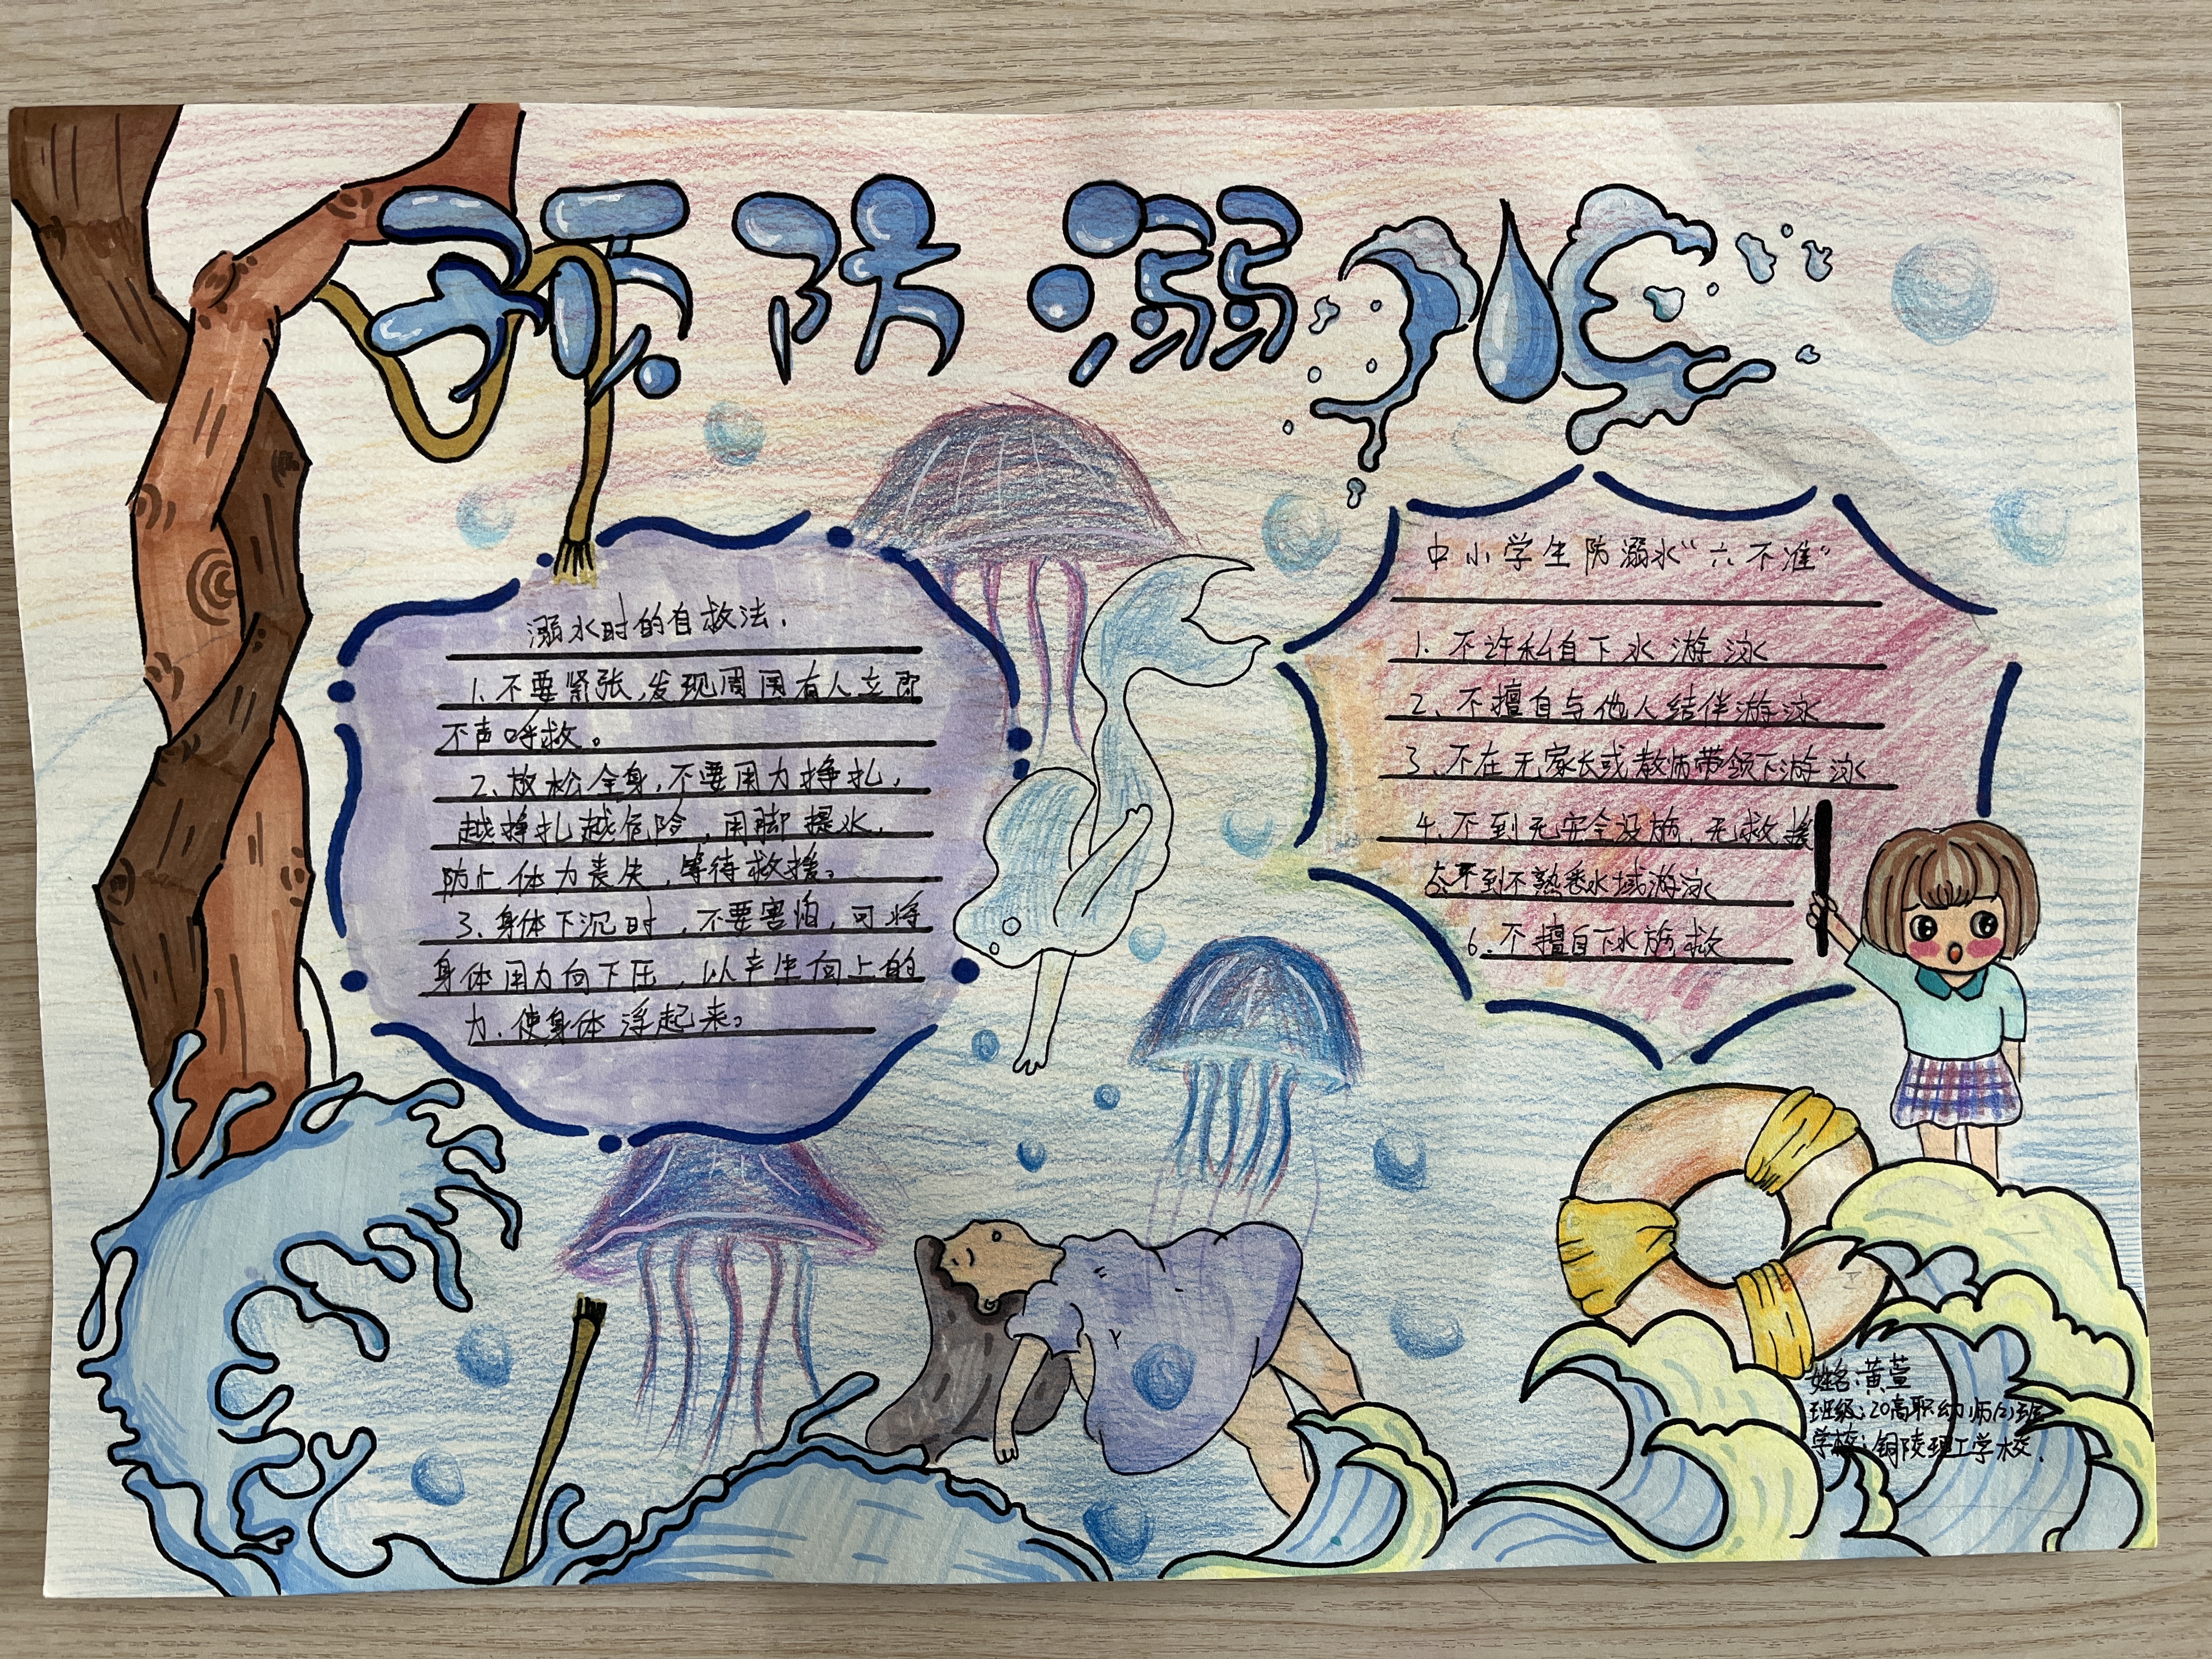 预防溺水
溺水时的自救法.
1.不要紧张,发现周围有人立即
大声呼救。
2.放松全身,不要用力挣扎,
越挣扎越危险,用脚提水,
防止体力丧失,等待救援。
3.身体下沉时,不要害怕,可将
身体用力向下压,以产生向上的
力,使身体浮起来。
中小学生防溺水“六不准”
1.不许私自下水游泳
2.不擅自与他人结伴游泳
3.不在无家长或教师带领下游泳
4.不到无安全设施,无救援
不到不熟悉水域游泳
6.不擅自下水施救
姓名:黄萱
班级:20高职幼师班
学校:铜陵理工学校.